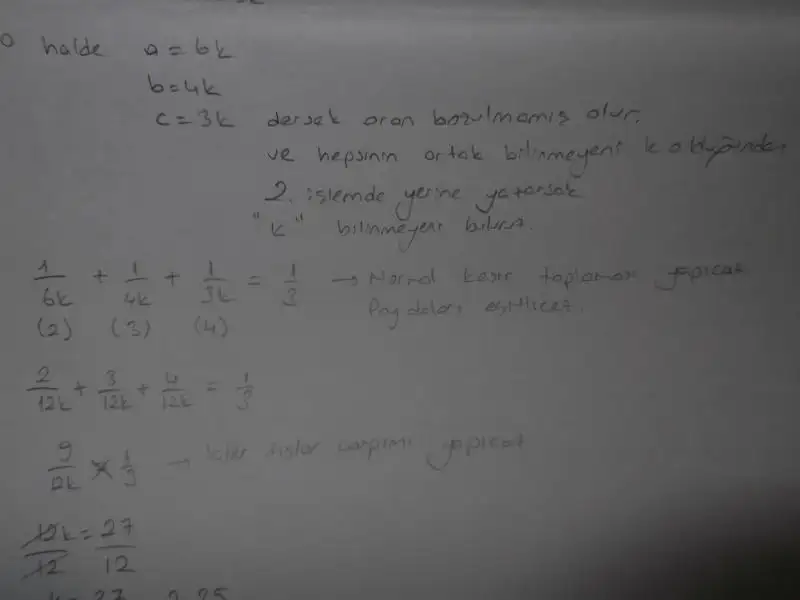 O halde a = 6k
b = 4k
c = 3k dersek oran bozulmamış olur.
ve hepsinin ortak bilinmeyeni k olduğundan
2. işlemde yerine yazarsak
"k" bilinmeyeni bulunur.
1/6k + 1/4k + 1/3k = 1/3 → Normal kesir toplaması yapıcaz
(2) (3) (4) Paydaları eşitlicez.
2/12k + 3/12k + 4/12k = 1/3
9/12k × 1/3 → İçler dışlar çarpımı yapıcaz
12k/12 = 27/12